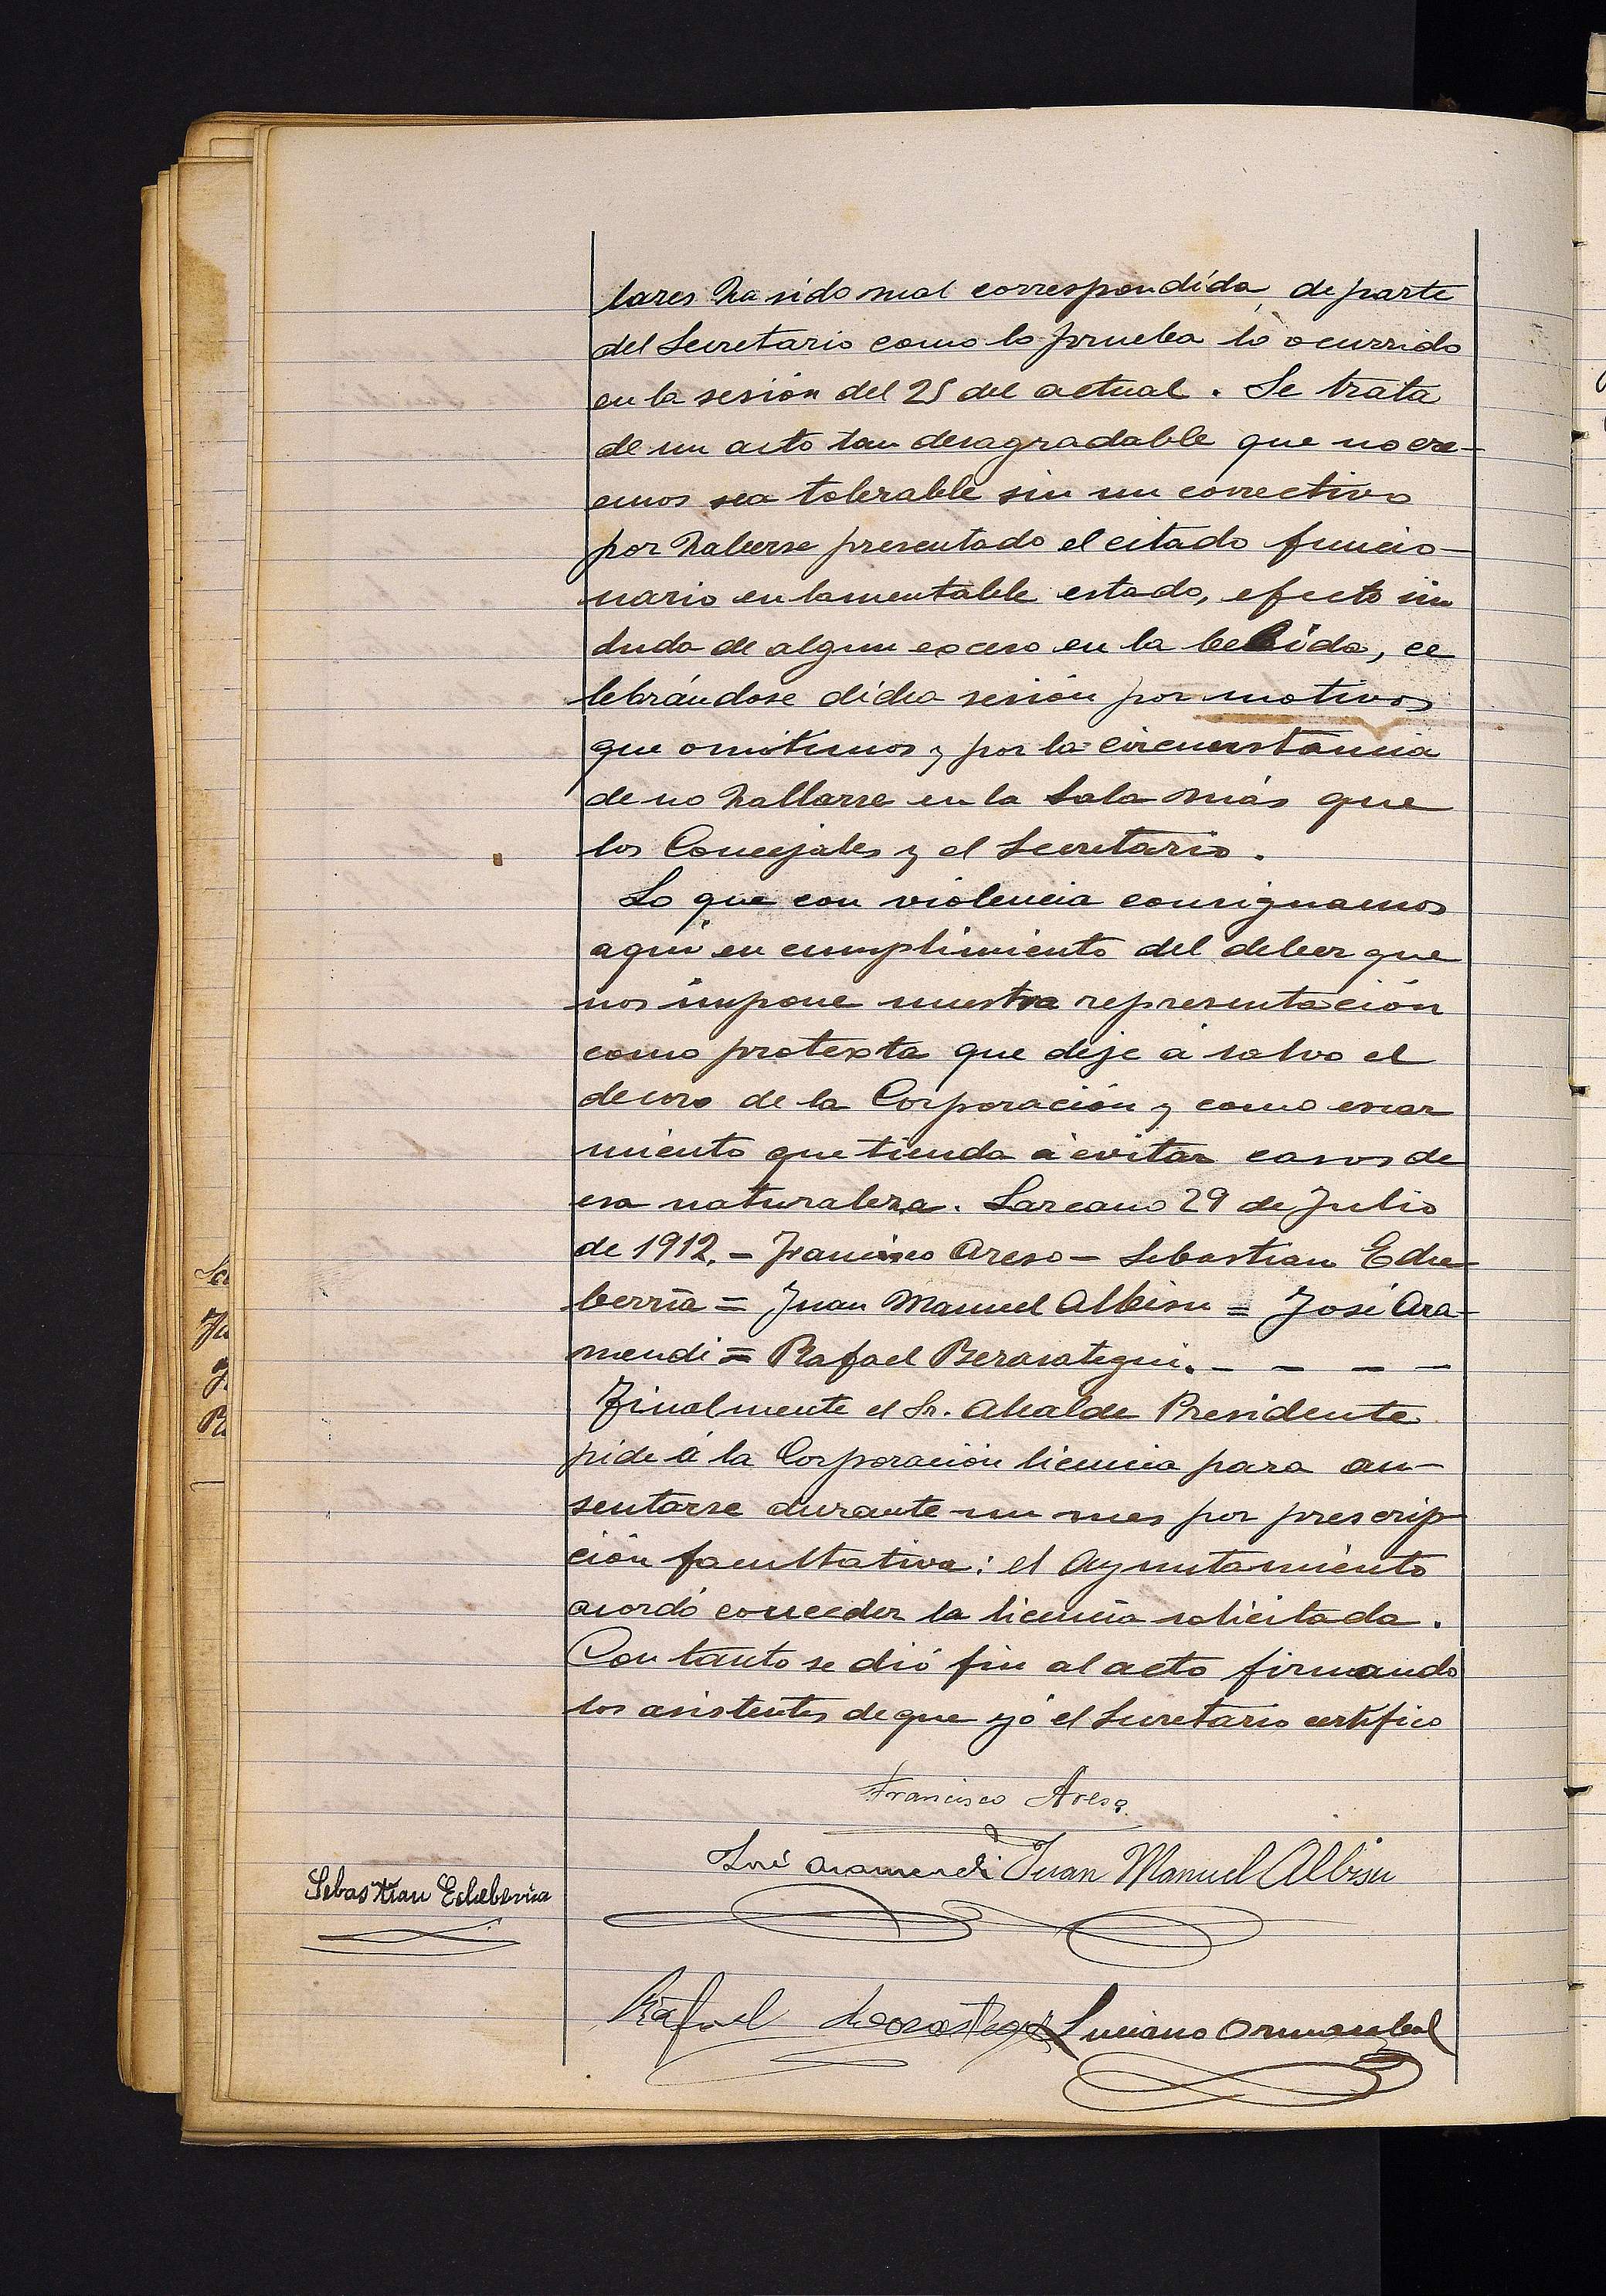 lares ha sido mal correspondida, de parte
del Secretario como lo prueba lo ocurrido
en la sesión del 25 del actual. Se trata
de un acto tan desagradable que no cre-
emos sea tolerable sin un correctivo
por haberse presentado el citado funcio-
nario en lamentable estado, efecto sin
duda de algun exceso en la bebida, ce
lebrándose dicha sesión por motivos
que omitimos y por la circunstancia
de no hallarse en la Sala más que
los Concejales y el Secretario.
Lo que con violencia consignamos
aquí en cumplimiento del deber que
nos impone nuestra representación
como protexta que deje á salvo el
decoro de la Corporación y como escar
miento que tienda á evitar casos de
esa naturaleza. Lazcano 29 de Julio
de 1912. - Francisco Areso - Sebastian Eche-
berría = Juan Manuel Albisu = José Ara-
mendi = Rafael Berasategui. - - - -
Finalmente el Sr. Alcalde Presidente
pide á la Corporación licencia para au-
sentarse durante un mes por prescrip-
ción facultativa: el Ayuntamiento
acordó conceder la licencia solicitada.
Con tanto se dió fin al acto firmando
los asistentes de que yó el Secretario certifico
Francisco Areso
José Aramendi Juan Manuel Albisu
Sebastian Echeberria
Rafael Berasategui Luciano